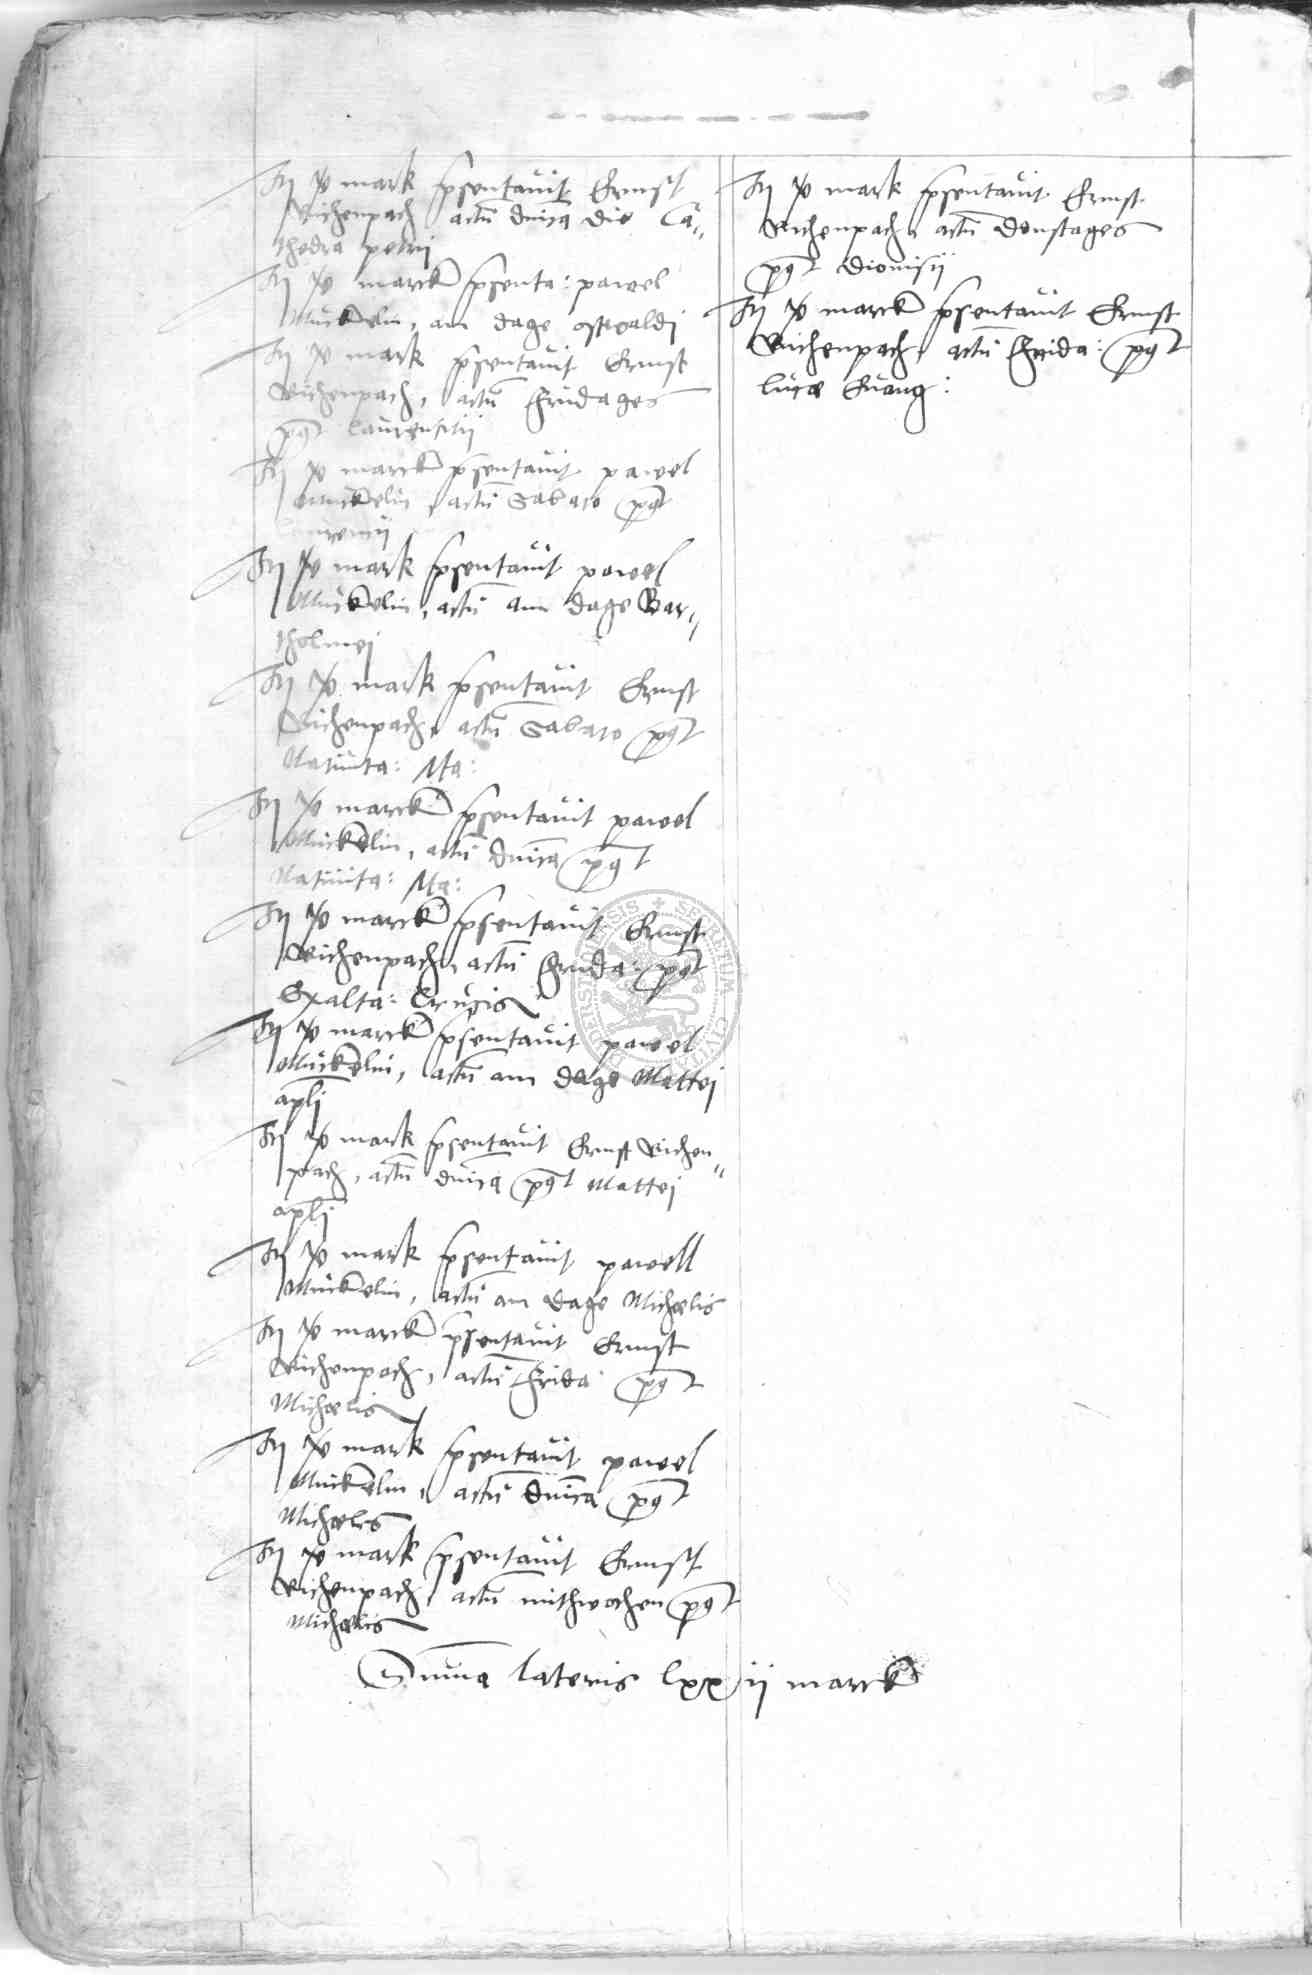 mark psentavit Ernst
Eichenpach actu dnica die Ca„
thedra petrij
marck psenta: pawel
Mückelin, am dage ostwaldj
mark psentavit Ernst
Eichenpach, actu fridages
post laurentij
marck psentavit pawel
Mückelin, actu Sabato post
laurentij
mark psentavit pawel
Mückelin, actu am dage Bar„
tholmej
mark psentavit Ernst
Eichenpach, actu Sabato post
Natiuita: Ma:
marck psentavit pawel
Mückelin, actu dnica post
Natiuita: Ma:
marck psentavit Ernst
Eichenpach, actu frida: post
Exalta: Crucis
marck psentavit pawel
Mückelin, actu am dage Mattej
apli
mark psentavit Ernst Eichen„
pach, actu dnica post Mattej
apli
mark psentavit pawell
Mückelin, actu am dage Michelis
marck psentavit Ernst
Eichenpach, actu frida post
Michelis
mark psentavit pawel
Mückelin, actu dnica post
Michelis
mark psentavit Ernst
Eichenpach, actu mithwochen post
Michelis
mark psentavit Ernst
Eichenpach, actu denstages
post dionisij
marck psentavit Ernst
Eichenpach, actu frida: post
luce Euang:
Suma lateris lxxij marck
SECRETUM CIVITA